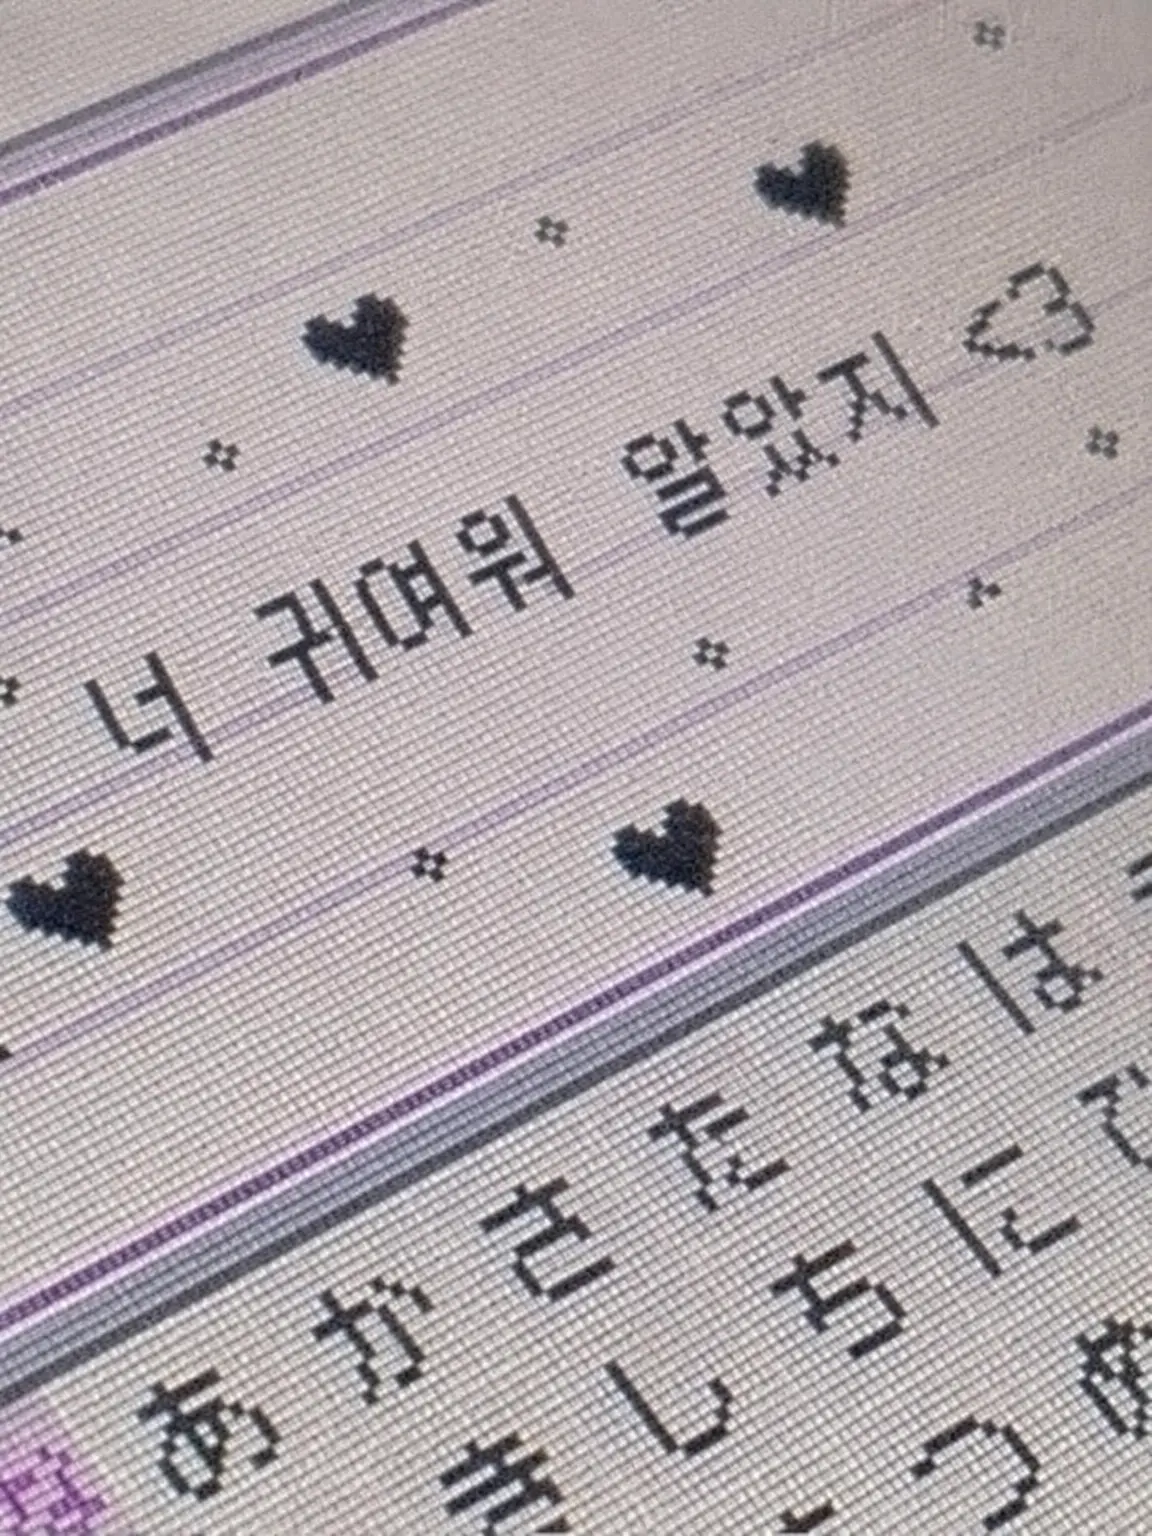 너 귀여워 알았지 ♡
あ か さ た な は
き し ち に ひ
つ ぬ